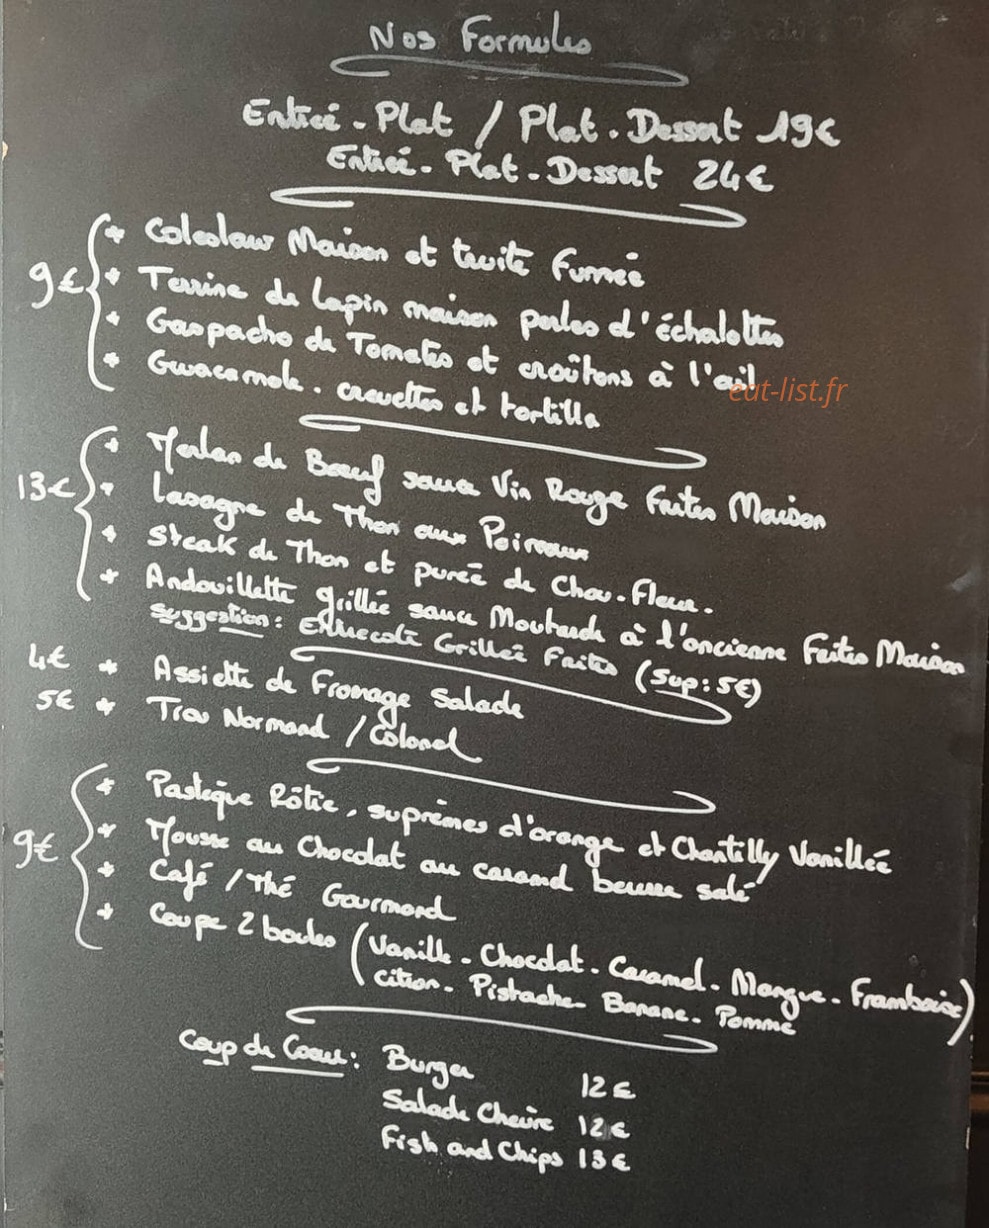 Nos Formules
Entrée - Plat / Plat - Dessert 19€
Entrée - Plat - Dessert 24€
* Coleslaw Maison et truite fumée
9€ * Terrine de Lapin maison perles d'échalottes
* Gaspacho de Tomates et croûtons à l'ail
eat-list.fr
* Gwacamole - crevettes et tortilla
* Merlan de Bœuf sauce Vin Rouge Frites Maison
13€ * Lasagne de Thon aux Poireaux
* Steak de Thon et purée de Chou-Fleur.
* Andouillette grillée sauce Moutarde à l'ancienne Frites Maison
Suggestion: Entrecôte Grillée Frites (Sup: 5€)
4€ * Assiette de Fromage Salade
5€ * Trou Normand / Colonel
* Pastèque Rôtie, suprêmes d'orange et Chantilly Vanillée
9€ * Mousse au Chocolat au caramel beurre salé
* Café / Thé Gourmand
* Coupe 2 boules (Vanille - Chocolat - Caramel - Mangue - Framboise)
citron - Pistache - Banane - Pomme
Coup de Coeur: Burger 12€
Salade Chèvre 12€
Fish and Chips 13€